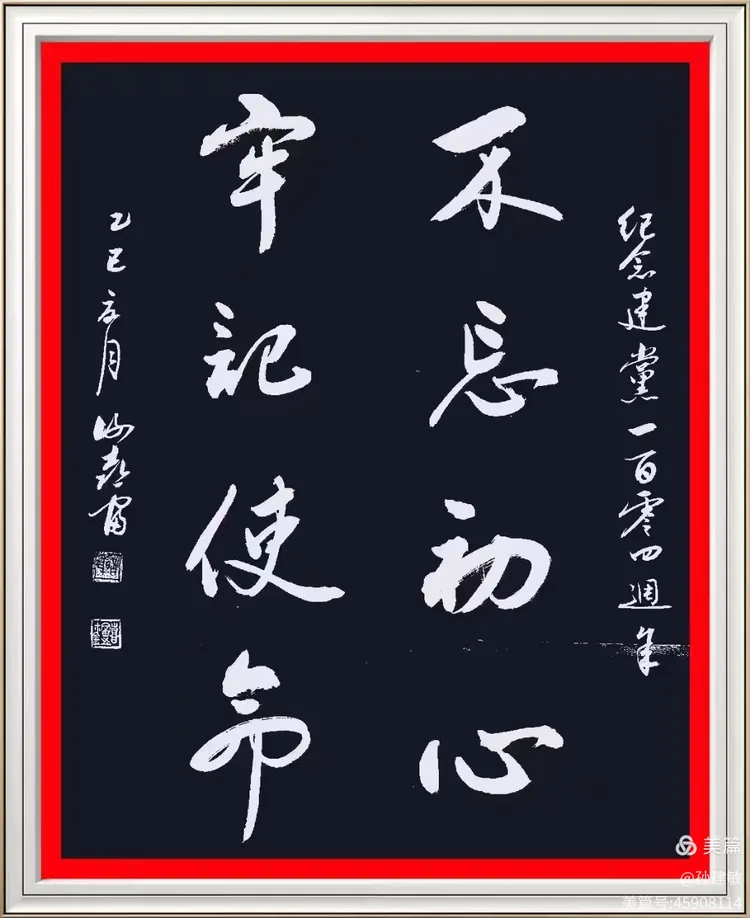 纪念建黨一百零四週年
不忘初心
牢记使命
乙巳六月
美篇
@孙建敏
美篇号:45908114